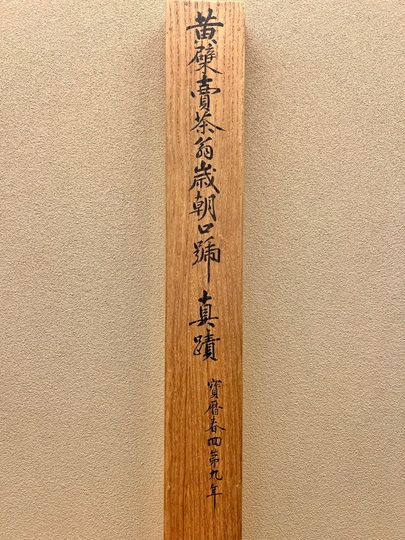 黄檗賣茶翁歳朝口號 真蹟
寳暦春四第九年